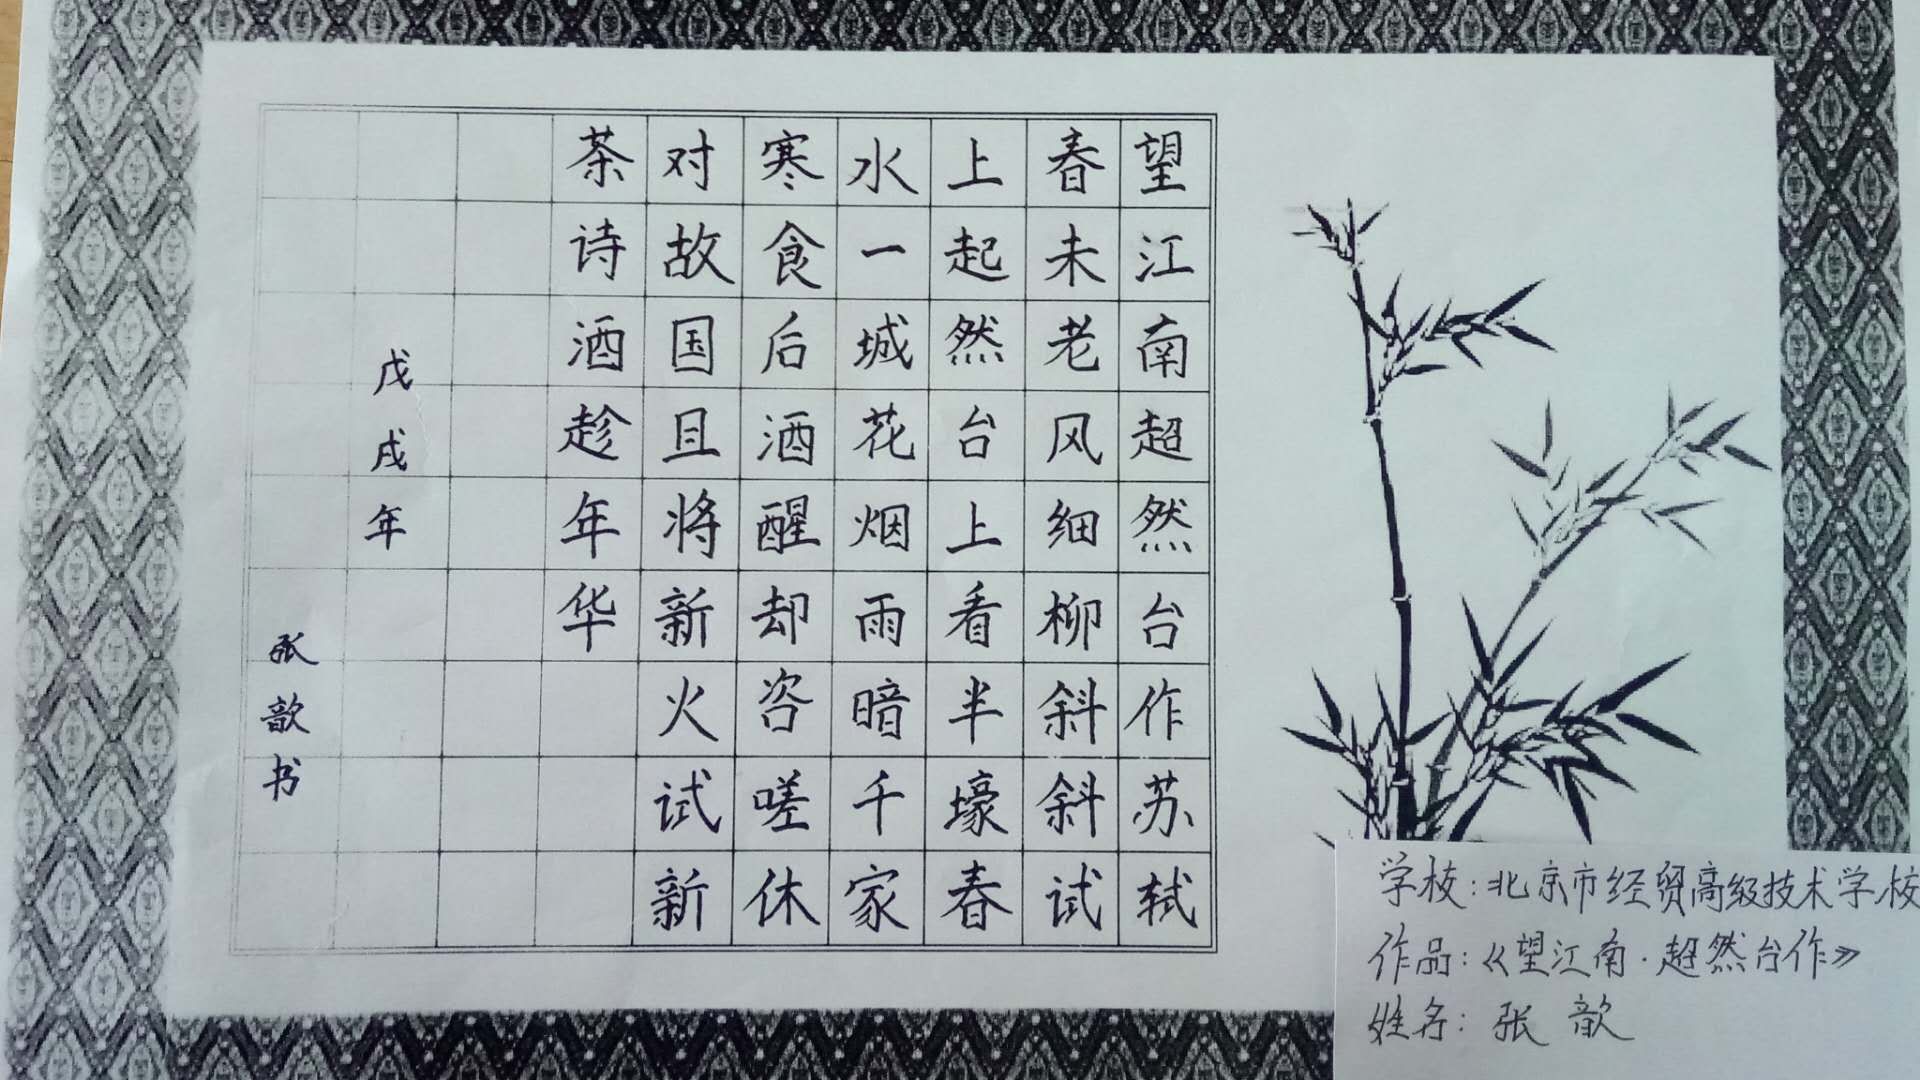 望江南超然台作苏轼
春未老风细柳斜斜试
上起然台上看半壕春
水一城花烟雨暗千家
寒食后酒醒却咨嗟休
对故国且将新火试新
茶诗酒趁年华
戊戌年
张歆书
学校：北京市经贸高级技术学校
作品：《望江南·超然台作》
姓名：张歆